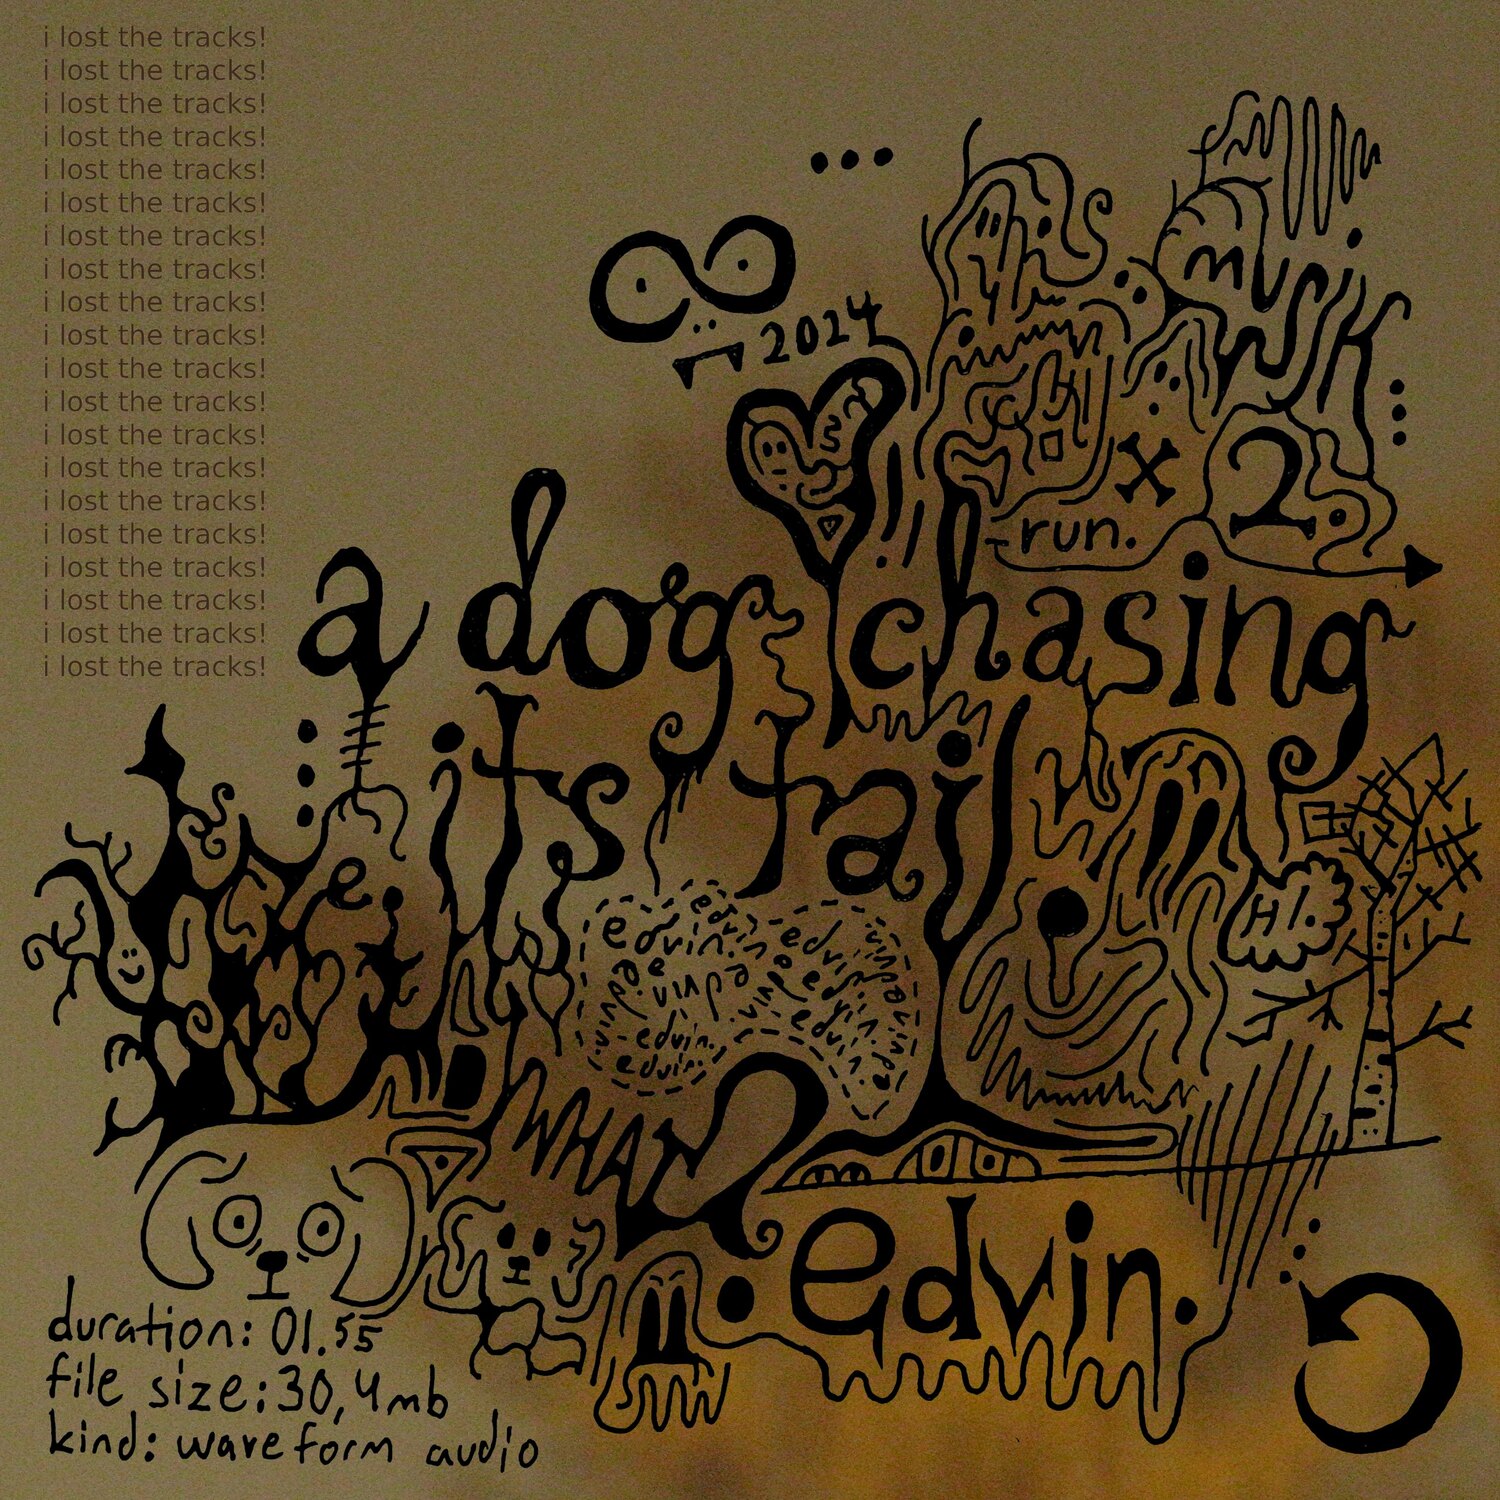 i lost the tracks!
i lost the tracks!
i lost the tracks!
i lost the tracks!
i lost the tracks!
i lost the tracks!
i lost the tracks!
i lost the tracks!
i lost the tracks!
i lost the tracks!
i lost the tracks!
i lost the tracks!
i lost the tracks!
i lost the tracks!
i lost the tracks!
i lost the tracks!
i lost the tracks!
i lost the tracks!
i lost the tracks!
i lost the tracks!
...
2024
musik
2
run.
a dog chasing
its tail
e.
Hi.
edvin.
edvin.
edvin.
edvin.
edvin.
edvin.
edvin.
WHAT
edvin.
duration: 01.55
file size: 30,4mb
kind: waveform audio